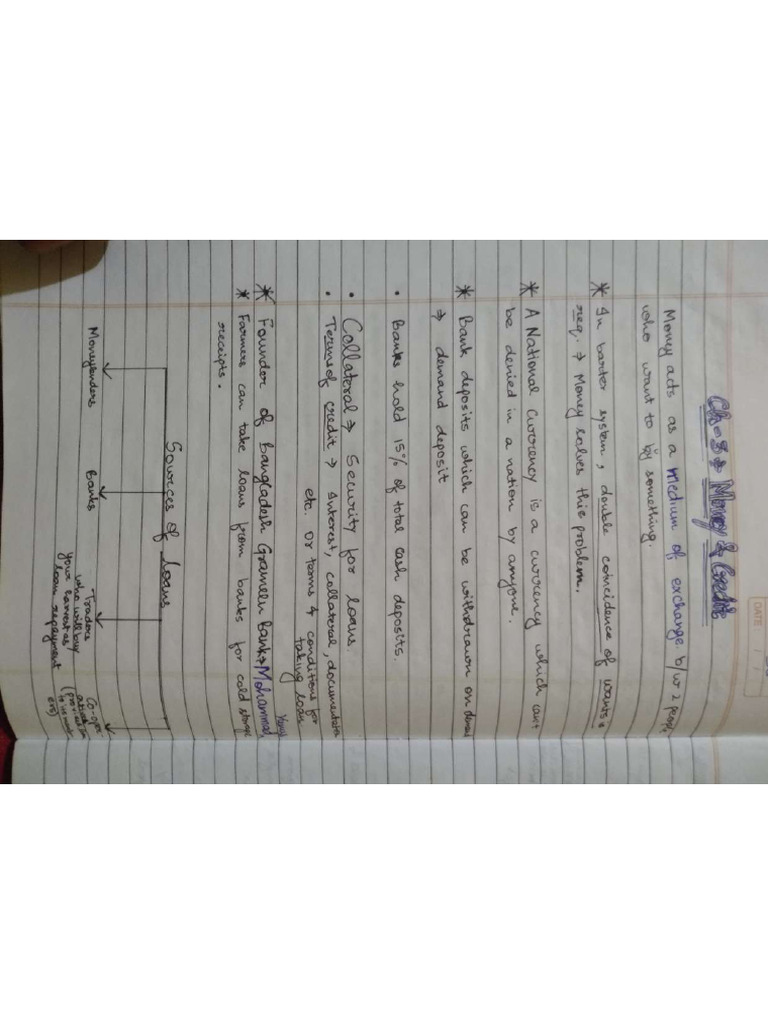 Ch-3 → Money & Credit
DATE
Money acts as a medium of exchange b/w 2 people
who want to by something.
* In barter system, double coincidence of wants
req. → Money solves this problem.
* A National Currency is a currency which cant
be denied in a nation by anyone.
* Bank deposits which can be withdrawn on demand
→ demand deposit
• Banks hold 15% of total cash deposits.
• Collateral → Security for loans.
• Terms of credit → Interest, collateral, documentation
etc. or terms & conditions for
taking loan
* Founder of Bangladesh Grameen Bank → Mohammad
Yunus
* Farmers can take loans from banks for cold storage
receipts.
Sources of loans
Moneylenders
Banks
Traders
who will buy
your harvest as
loan repayment
Co-oper